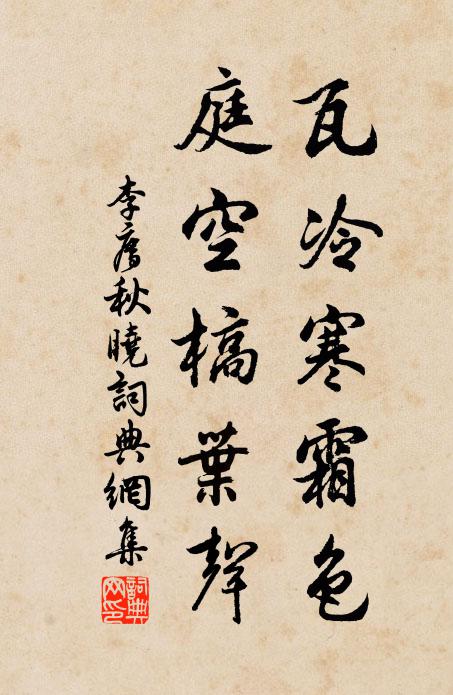 瓦冷寒霜色
庭空槁葉聲
李廌秋曉詞典網集
詞典
网印